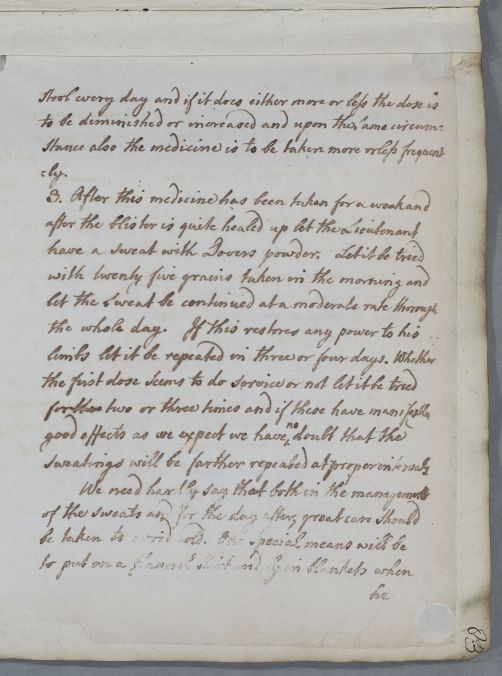 stool every day and if it does either more or less the dose is
to be diminished or increased and upon the same circum=
stance also the medicine is to be taken more or less frequent
=ly.
3. After this medicine has been taken for a week and
after the blister is quite healed up let the Lieutenant
have a sweat with Dovers powder. Let it be tried
with twenty five grains taken in the morning and
let the sweat be continued at a moderate rate thorough
the whole day. If this restores any power to his
limbs let it be repeated in three or four days. Whether
the first dose seems to do service or not let it be tried
for two or three times and if these have manifestly
good effects as we expect we have no doubt that the
sweatings will be farther repeated at proper intervals
We need hardly say that both in the management
of the sweats and for the day after, great care should
be taken to avoid cold. One special means will be
to put on a flannel shirt and ly in blankets when
he
83